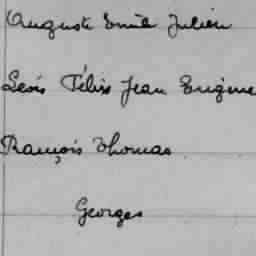 Auguste Emile Julien
Léois Félix Jean Eugène
François Thomas
Georges